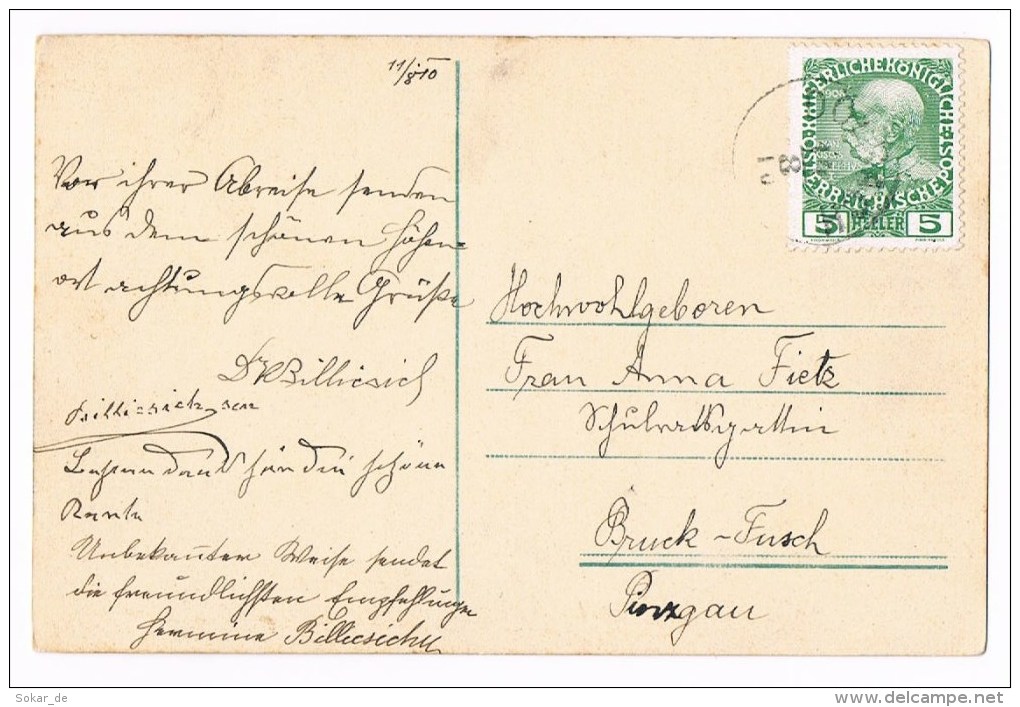 11/8 10
Vor ihrer Abreise senden
aus dem schönen Höhen-
ort achtungsvolle Grüße
Dr Billicsich
Billicsich sen
Besten Dank für die schöne
Karte
Unbekannter Weise sendet
die freundlichsten Empfehlungen
Hermine Billicsich
KAISERLICHE KÖNIGLICHE ÖSTERREICHISCHE POST
1908
5 HELLER 5
8
10
Hochwohlgeboren
Frau Anna Fietz
Schulratsgattin
Bruck-Fusch
Pinzgau
Sokar_de
http://www.delcampe.net